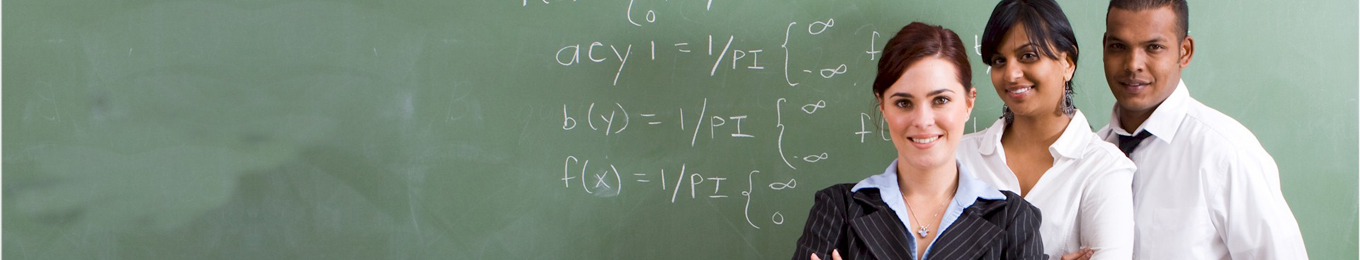 acy 1 = 1/PI { ∞ -∞ f
b(y) = 1/PI { ∞ -∞ f(
f(x) = 1/PI { ∞ 0